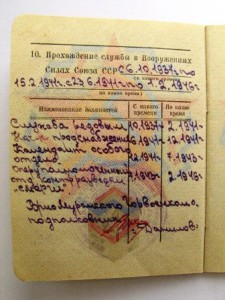 10. Прохождение службы в Вооруженных
Силах Союза ССР с 6.10.1937г. по
15.2.1941г. с 27.6.1941г. по 1.2.1946г.
(по какое время)
Наименование должностей
С какого времени
По какое время
Служба рядовым 10.1937г 2.1941г
Нач. 6.1941г 12.1941г
Комендант особого
отдела 12.1941г 7.1943г
оперуполномоченный
отд. контрразведки 7.1943г 2.1946г
"смерш"
горвоенкома.
подполковник
Данилов.